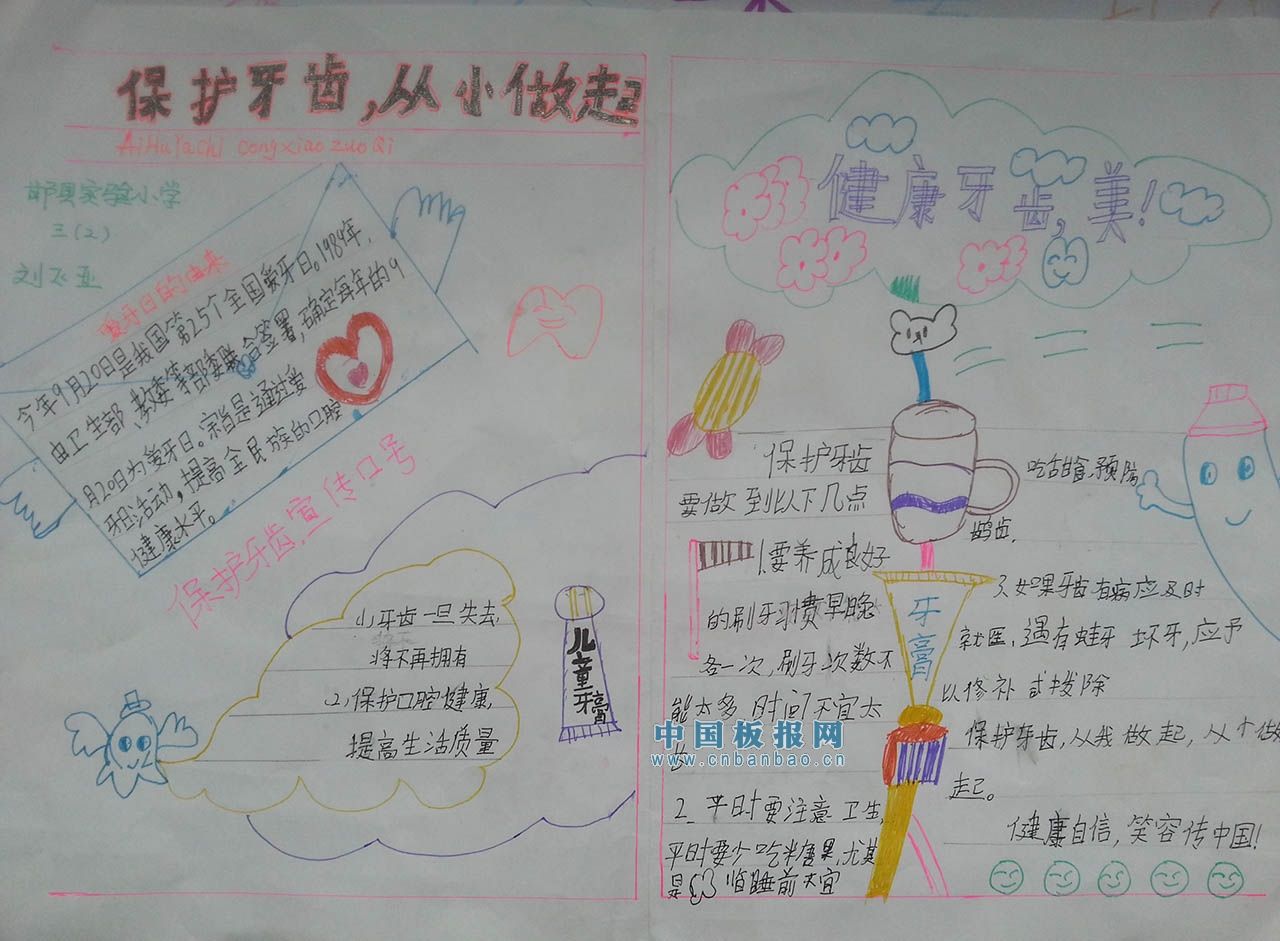 保护牙齿,从小做起
AiHuYachi congxiaozuoQi
邯县实验小学
三(2)
刘飞亚
爱牙日的由来
今年9月20日是我国第25个全国爱牙日。1989年,
由卫生部、教委等部委联合签署,确定每年的9
月20日为爱牙日。宗旨是通过爱
牙日活动,提高全民族的口腔
健康水平。
保护牙齿,宣传口号
1,牙齿一旦失去,
将不再拥有
2,保护口腔健康,
提高生活质量
儿童牙膏
健康牙齿,美!
保护牙齿
要做到以下几点
1.要养成良好
的刷牙习惯早晚
各一次,刷牙次数不
能太多,时间不宜太
2、平时要注意卫生,
平时要少吃糖果,尤其
是 临睡前不宜
吃甜食,预防
龋齿.
牙膏
3、如果牙齿有病应及时
就医,遇有蛀牙 坏牙,应予
以修补或拔除
保护牙齿,从我做起,从小做
起。
健康自信,笑容传中国!
中国板报网
www.cnbanbao.cn